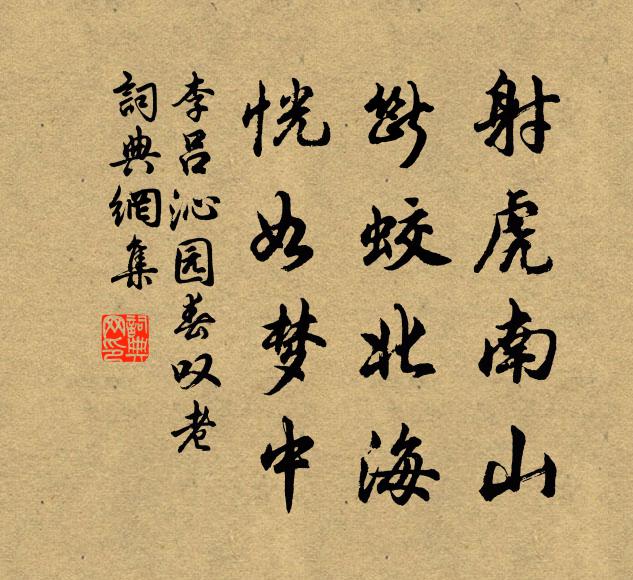 射虎南山
斷蛟北海
恍如梦中
李吕沁园春叹老
詞典網集
詞典
网印